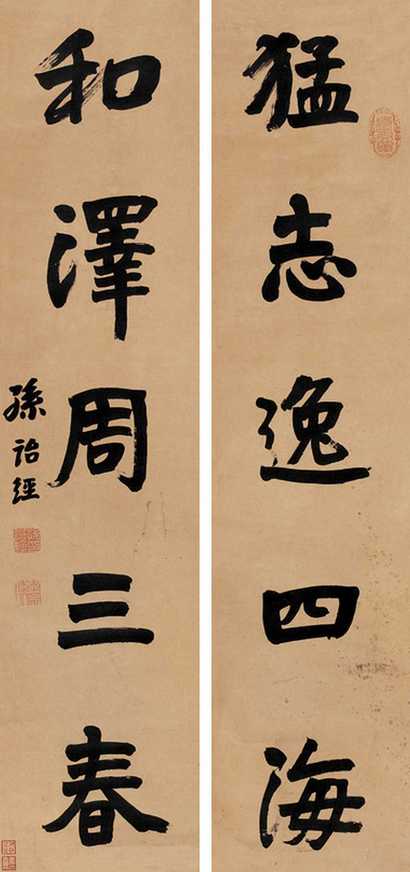 猛志逸四海
和澤周三春
孫詒經